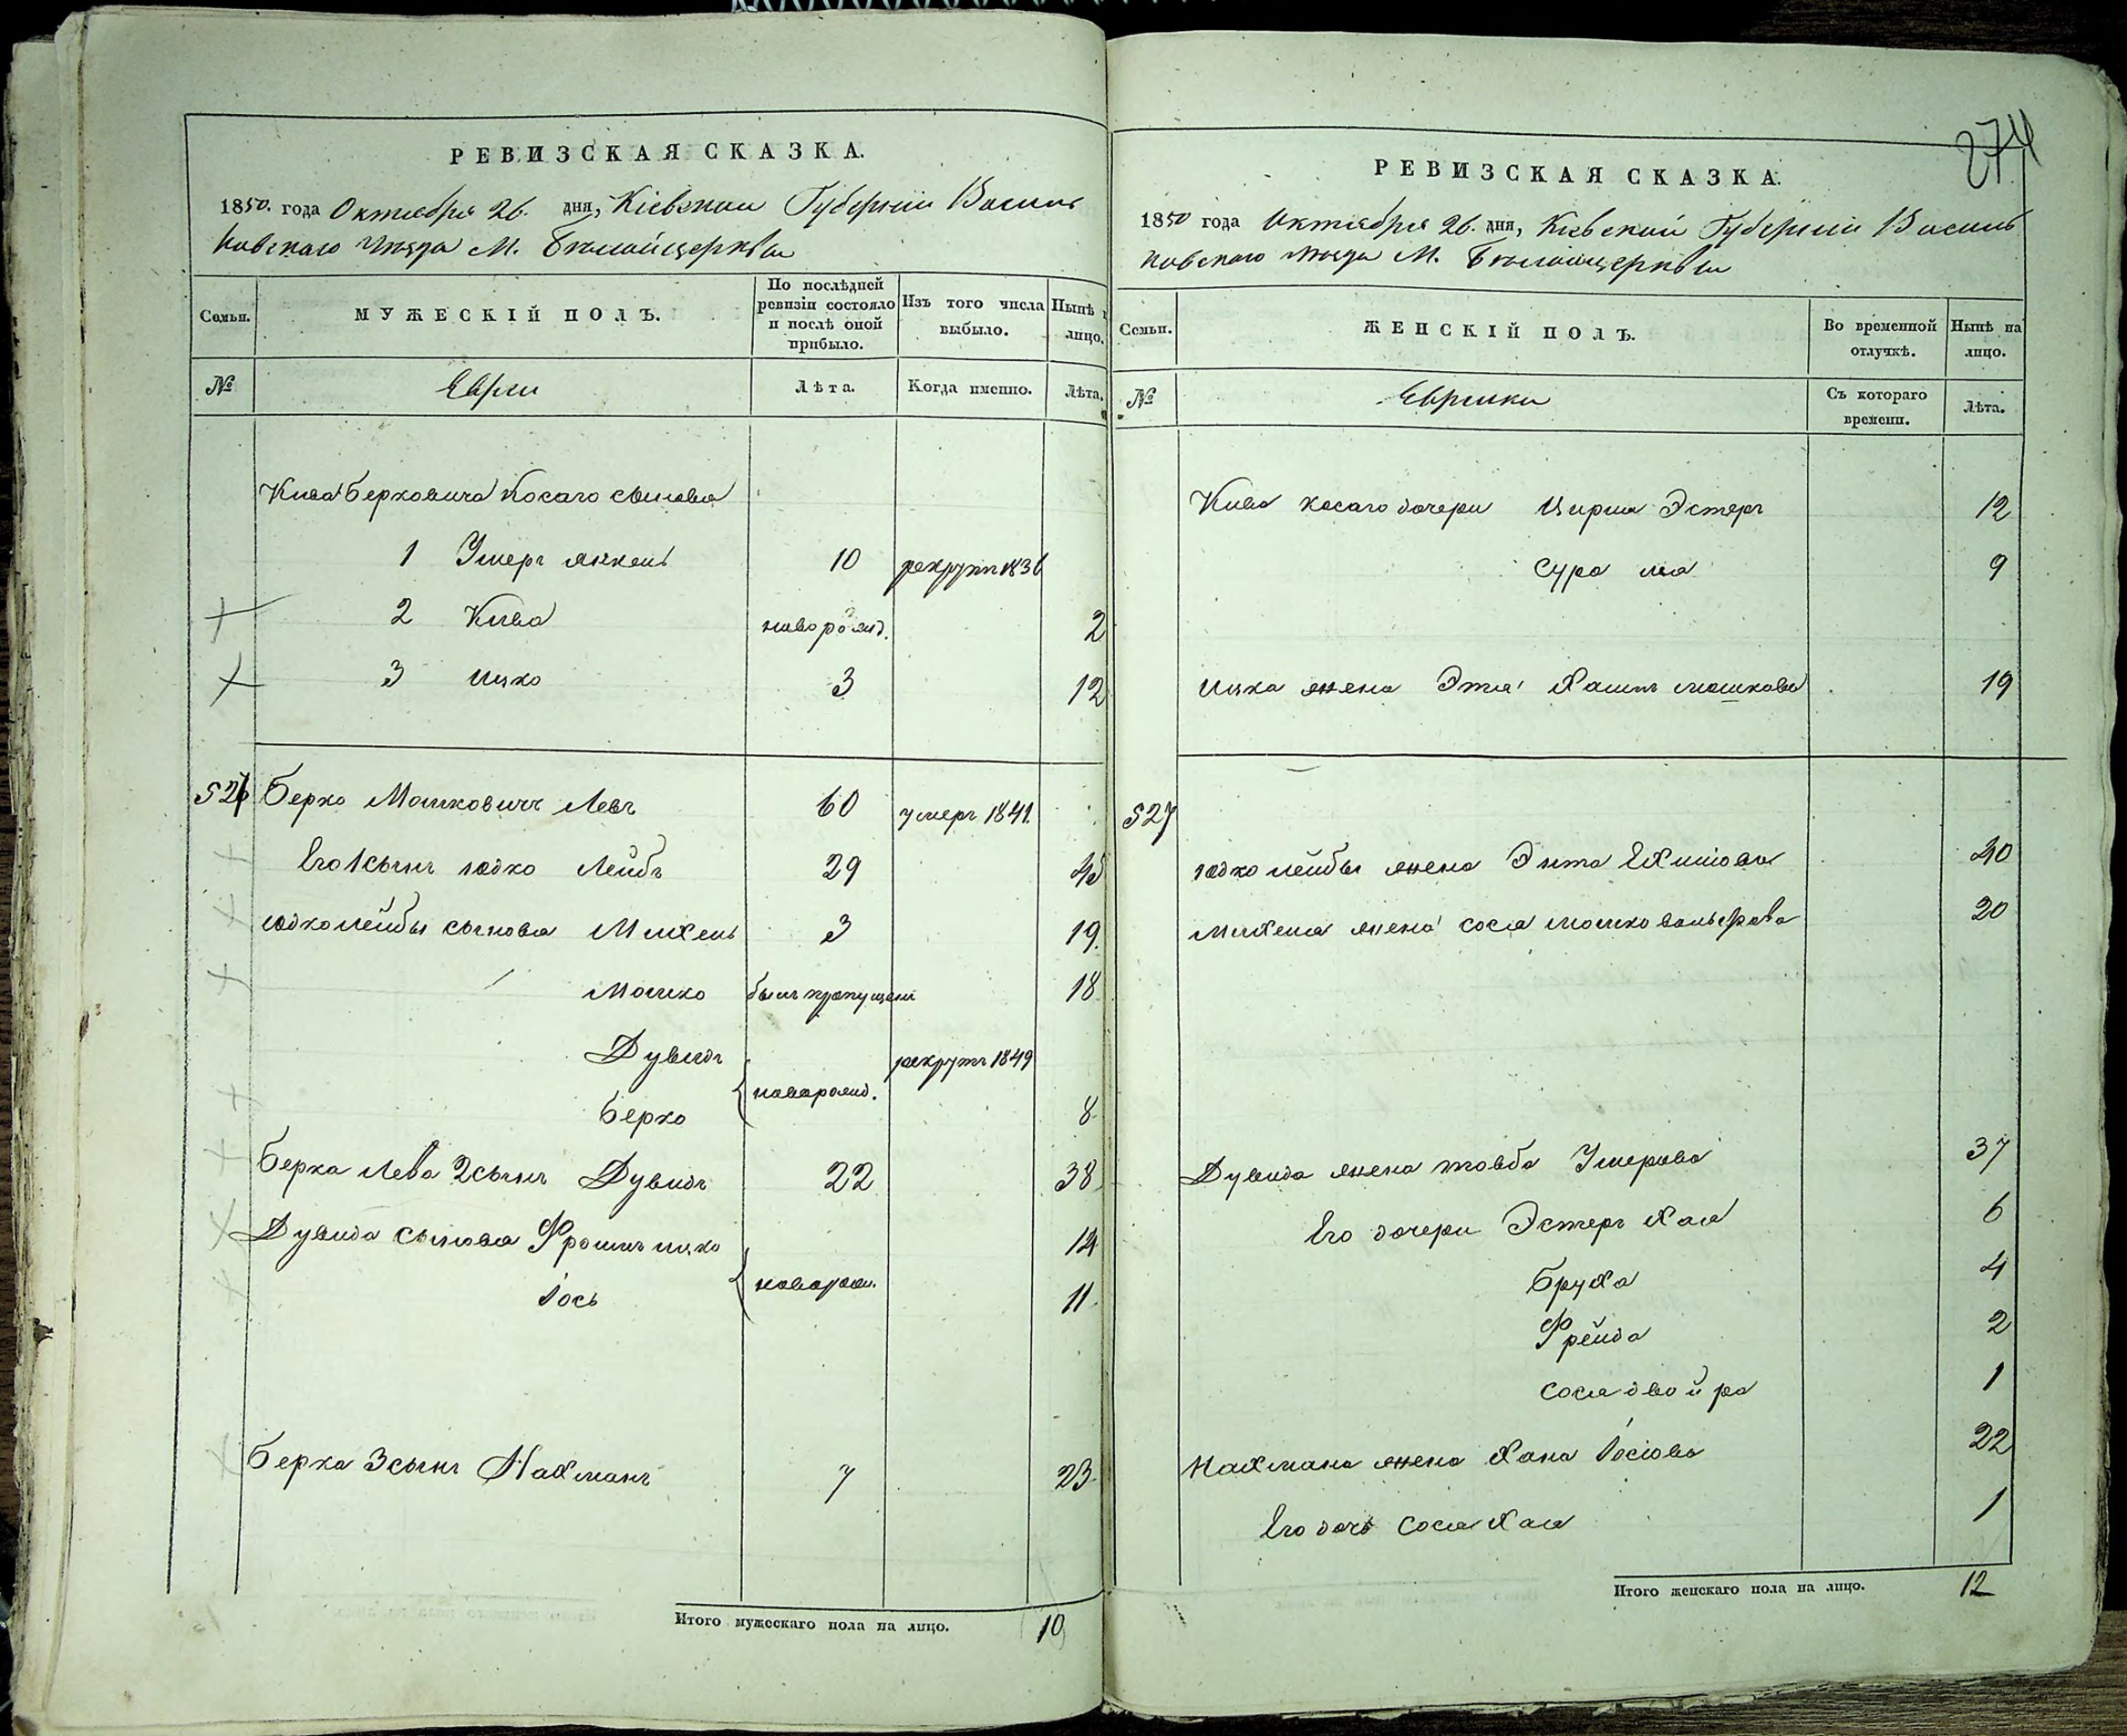 РЕВИЗСКАЯ СКАЗКА.
1850. года Октября 26. дня, Кіевской Губерніи Василь
ковскаго Уѣзда М. Бѣлойцеркви
Семьи.
МУЖЕСКІЙ ПОЛЪ.
По послѣдней ревизіи состояло и послѣ оной прибыло.
Изъ того числа выбыло.
Нынѣ лицо.
№
Евреи
Лѣта.
Когда именно.
Лѣта.
Кива Берковича Косаго сыновья
1 Умеръ Янкель 10 рекрутъ 1836
2 Кива новорожд. 2
3 Ицко 3 12
526 Берко Мошковичъ Левъ 60 умеръ 1841.
Его 1 сынъ Юдко Лейбъ 29 45
Юдко Лейбы сыновья Михель 3 19.
Мошко былъ пропущенъ 18
Дувидъ рекрутъ 1849
новорожд.
Берко 8
Берка Лева 2 сынъ Дувидъ 22 38
Дувида сыновья Фроимъ Ицко 14
новорож.
Іось 11.
Берка 3 сынъ Нахманъ 7 23.
Итого мужескаго пола на лицо. 10
274
РЕВИЗСКАЯ СКАЗКА.
1850 года Октября 26. дня, Кіевской Губерніи Василь
ковскаго Уѣзда М. Бѣлойцеркви
Семьи.
ЖЕНСКІЙ ПОЛЪ.
Во временной отлучкѣ.
Нынѣ на лицо.
№
Еврейки
Съ котораго времени.
Лѣта.
Кива Косаго дочери Цирля Эстеръ 12
Сура 9
Ицка жена Этля Хаимъ Мошкова 19
527
Юдко Лейбы жена Энта 40
Михеля жена Сося Мошко Вольфова 20
Дувида жена Товба Умерова 37
Его дочери Эстеръ Хая 6
Бруха 4
Фрейда 2
Сося Двойра 1
Нахмана жена Хана Іосіова 22
Его дочь Сося Хая 1
Итого женскаго пола на лицо. 12